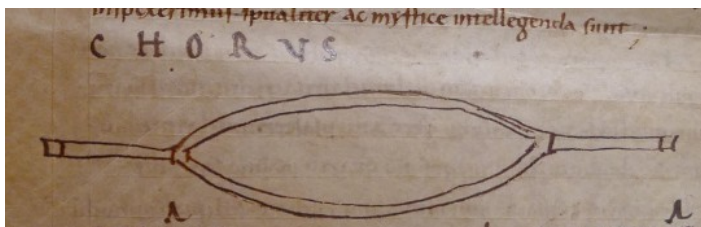 inspexerimus spualiter ac mystice intellegenda sunt ;
C H O R V S
A A